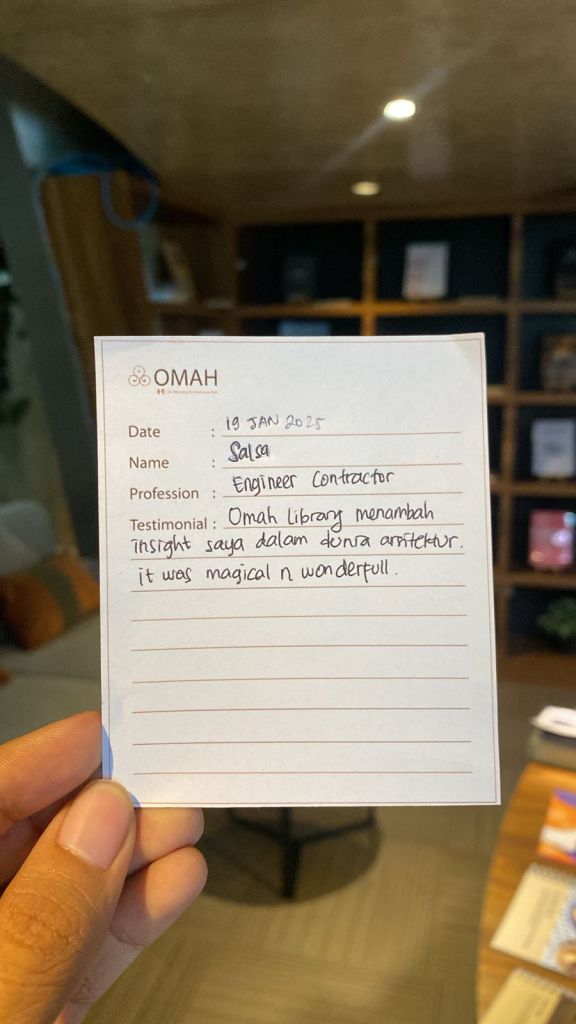 OMAH
Date : 19 JAN 2025
Name : Salsa
Profession : Engineer Contractor
Testimonial : Omah Library menambah
insight saya dalam dunia arsitektur.
it was magical n wonderfull.